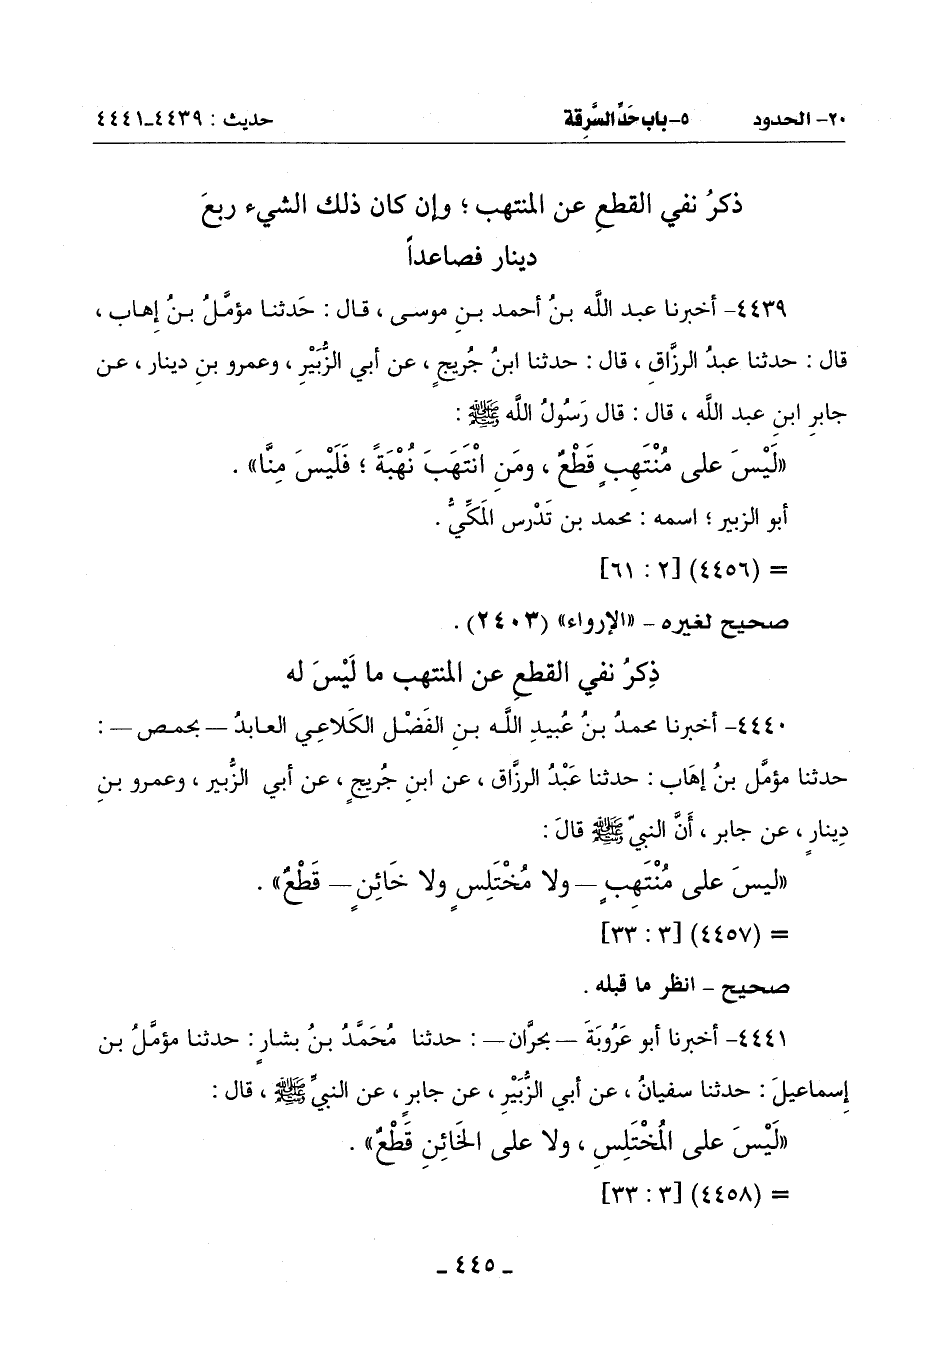 ٢٠- الحدود ٥- باب حَدِّ السَّرِقة حديث : ٤٤٣٩-٤٤٤١
ذكرُ نفي القطعِ عن المنتهب ؛ وإن كان ذلك الشيء ربعَ
دينار فصاعداً
٤٤٣٩- أخبرنا عبد اللَّه بنُ أحمد بـنِ موسـى ، قـال : حَدثنـا مؤمَّلُ بـنُ إهاب ،
قال : حدثنا عبدُ الرزَّاقِ ، قال : حدثنا ابنُ جُريجٍ ، عن أبي الزُّبَيْرِ ، وعمرو بنِ دينار ، عـن
جابرِ ابنِ عبد اللَّه ، قال : قال رَسُولُ اللَّه ﷺ :
«لَيْسَ على مُنْتَهِبٍ قَطْعٌ ، ومَنِ انْتَهَبَ نُهْبَةً ؛ فَلَيْسَ مِنَّا» .
أبو الزبير ؛ اسمه : محمد بن تَدْرس المَكِّيُّ .
= (٤٤٥٦) [٢ : ٦١]
صحيح لغيره - «الإرواء» (٢٤٠٣) .
ذِكرُ نفي القطعِ عن المنتهب ما لَيْسَ له
٤٤٤٠- أخبرنا محمدُ بـنُ عُبيدِ اللَّـه بـنِ الفَضْـل الكَلاعِي العابدُ - بحمـص - :
حدثنا مؤمَّل بنُ إهَاب : حدثنا عَبْدُ الرزَّاق ، عن ابنِ جُريجٍ ، عن أبي الزُّبير ، وعمرو بنِ
دِينارٍ ، عن جابر ، أَنَّ النبيَّ ﷺ قالَ :
«ليسَ على مُنْتَهِبٍ - ولا مُخْتَلِسٍ ولا خَائِنٍ - قَطْعٌ» .
= (٤٤٥٧) [٣ : ٣٣]
صحيح - انظر ما قبله .
٤٤٤١- أخبرنا أبو عَرُوبَةَ - بحرَّان - : حدثنا مُحَمَّدُ بـنُ بشارٍ : حدثنا مؤمَّلُ بن
إسماعيلَ : حدثنا سفيانُ ، عن أبي الزُّبَيْرِ ، عن جابرٍ ، عن النبيِّ ﷺ ، قال :
«لَيْسَ على المُخْتَلِسِ ، ولا على الخَائِنِ قَطْعٌ» .
= (٤٤٥٨) [٣ : ٣٣]
- ٤٤٥ -